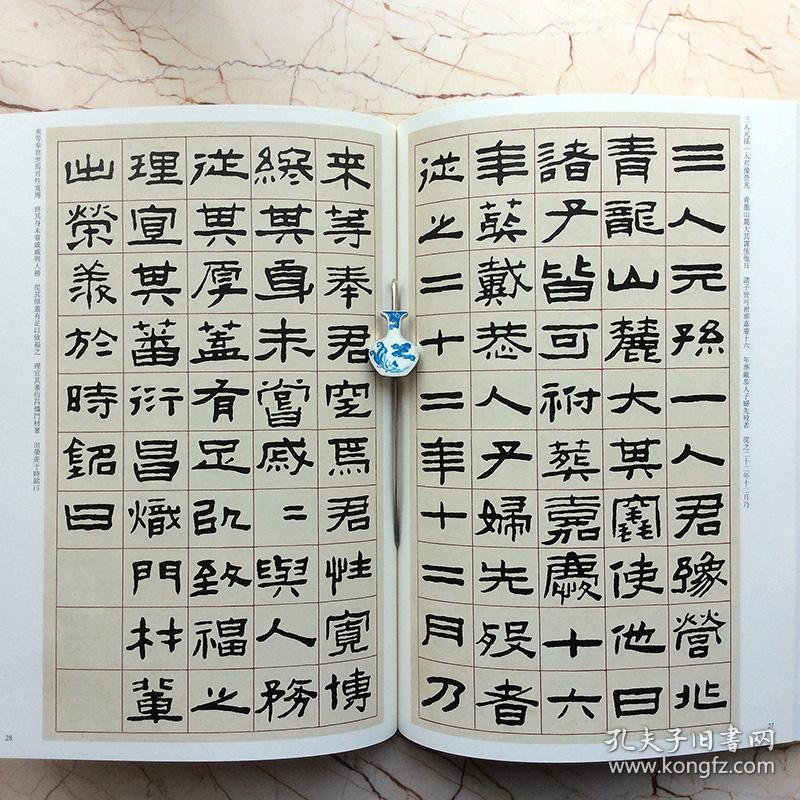 三人元孫一人君豫營兆 青龍山麓大其竁使他日 諸子皆可祔葬嘉慶十六 年葬戴恭人子婦先歿者 從之二十二年十二月乃
三人元孫一人君豫營兆
青龍山麓大其竁使他日
諸子皆可祔葬嘉慶十六
年葬戴恭人子婦先歿者
從之二十二年十二月乃
27
來等奉君窆焉君性寬博
終其身未嘗戚〻與人務
從其厚蓋有足以致福之
理宜其蕃衍昌熾門材輩
出榮羨於時銘曰
來等奉君窆焉君性寬博 終其身未嘗戚戚與人務 從其厚蓋有足以致福之 理宜其蕃衍昌熾門材輩 出榮羨于時銘曰
28
孔夫子旧书网
www.kongfz.com